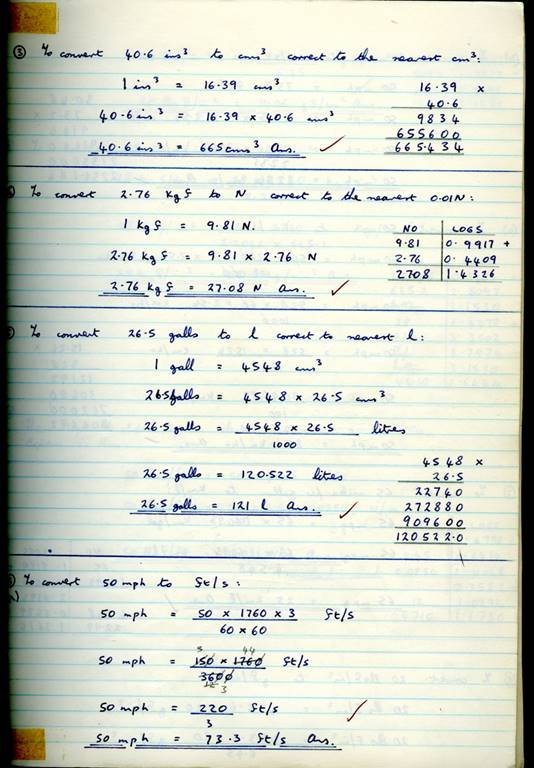 ③ To convert 40·6 ins³ to cms³ correct to the nearest cm³:
1 ins³ = 16·39 cms³
16·39 ×
40·6
40·6 ins³ = 16·39 × 40·6 cms³
9834
655600
40·6 ins³ = 665 cms³ Ans. ✓
665·434
To convert 2·76 Kg f to N correct to the nearest 0·01N:
1 Kg f = 9·81 N.
NO LOGS
9·81 0·9917 +
2·76 Kg f = 9·81 × 2·76 N
2·76 0·4409
2708 1·4326
2·76 Kg f = 27·08 N Ans. ✓
To convert 26·5 galls to l correct to nearest l:
1 gall = 4548 cms³
26·5 galls = 4548 × 26·5 cms³
26·5 galls = 4548 × 26·5 litres
1000
4548 ×
26·5 galls = 120·522 litres
26·5
22740
26·5 galls = 121 l Ans. ✓
272880
909600
120522·0
To convert 50 mph to ft/s:
50 mph = 50 × 1760 × 3 ft/s
60 × 60
5 44
50 mph = 150 × 1760 ft/s
3600
12 3
50 mph = 220 ft/s ✓
3
50 mph = 73·3 ft/s Ans.